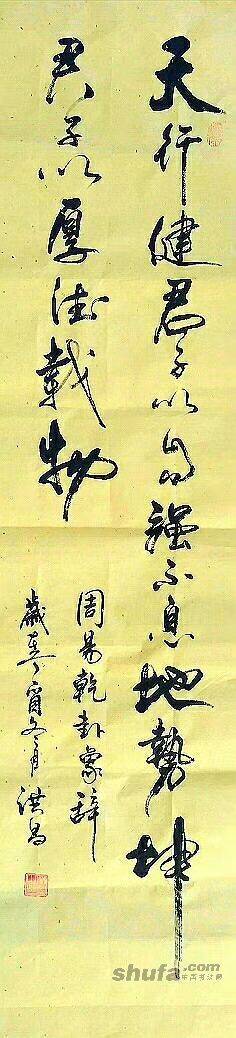 天行健君子以自强不息地勢坤
君子以厚德載物
周易乾卦象辭
歲在甲寅冬月洪昌
shufa.com
中国书法网